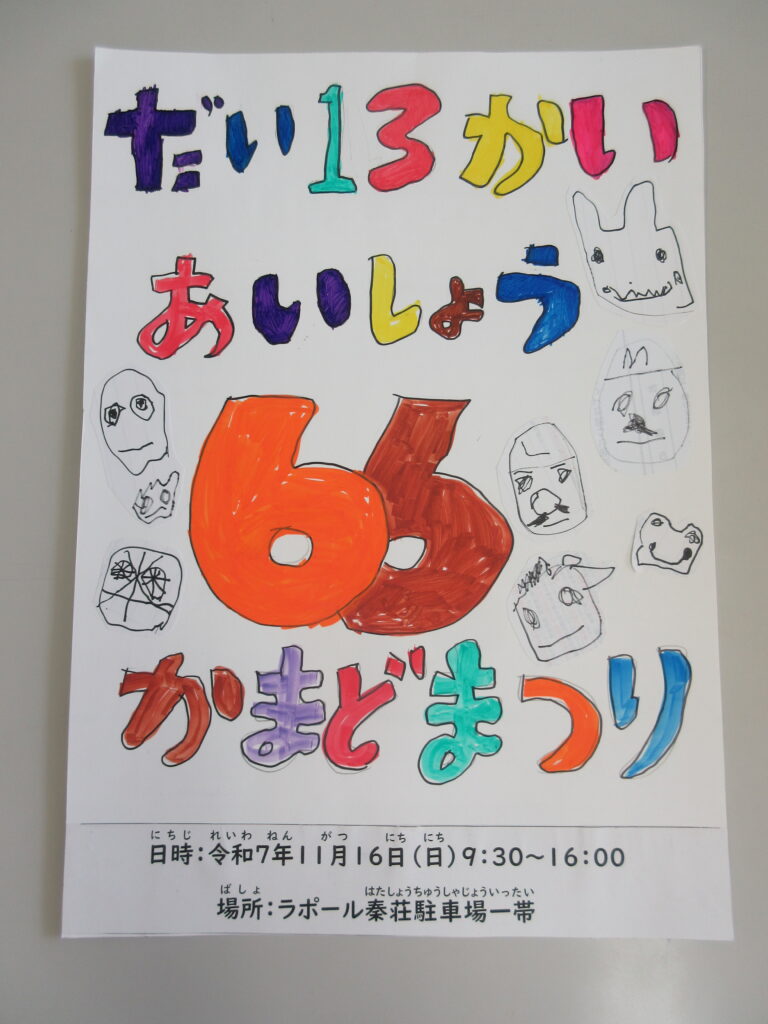 だい13かい
あいしょう
66
かまどまつり
にちじ れいわ ねん がつ にち にち
日時:令和7年11月16日(日)9:30~16:00
ばしょ はたしょうちゅうしゃじょういったい
場所:ラポール秦荘駐車場一帯